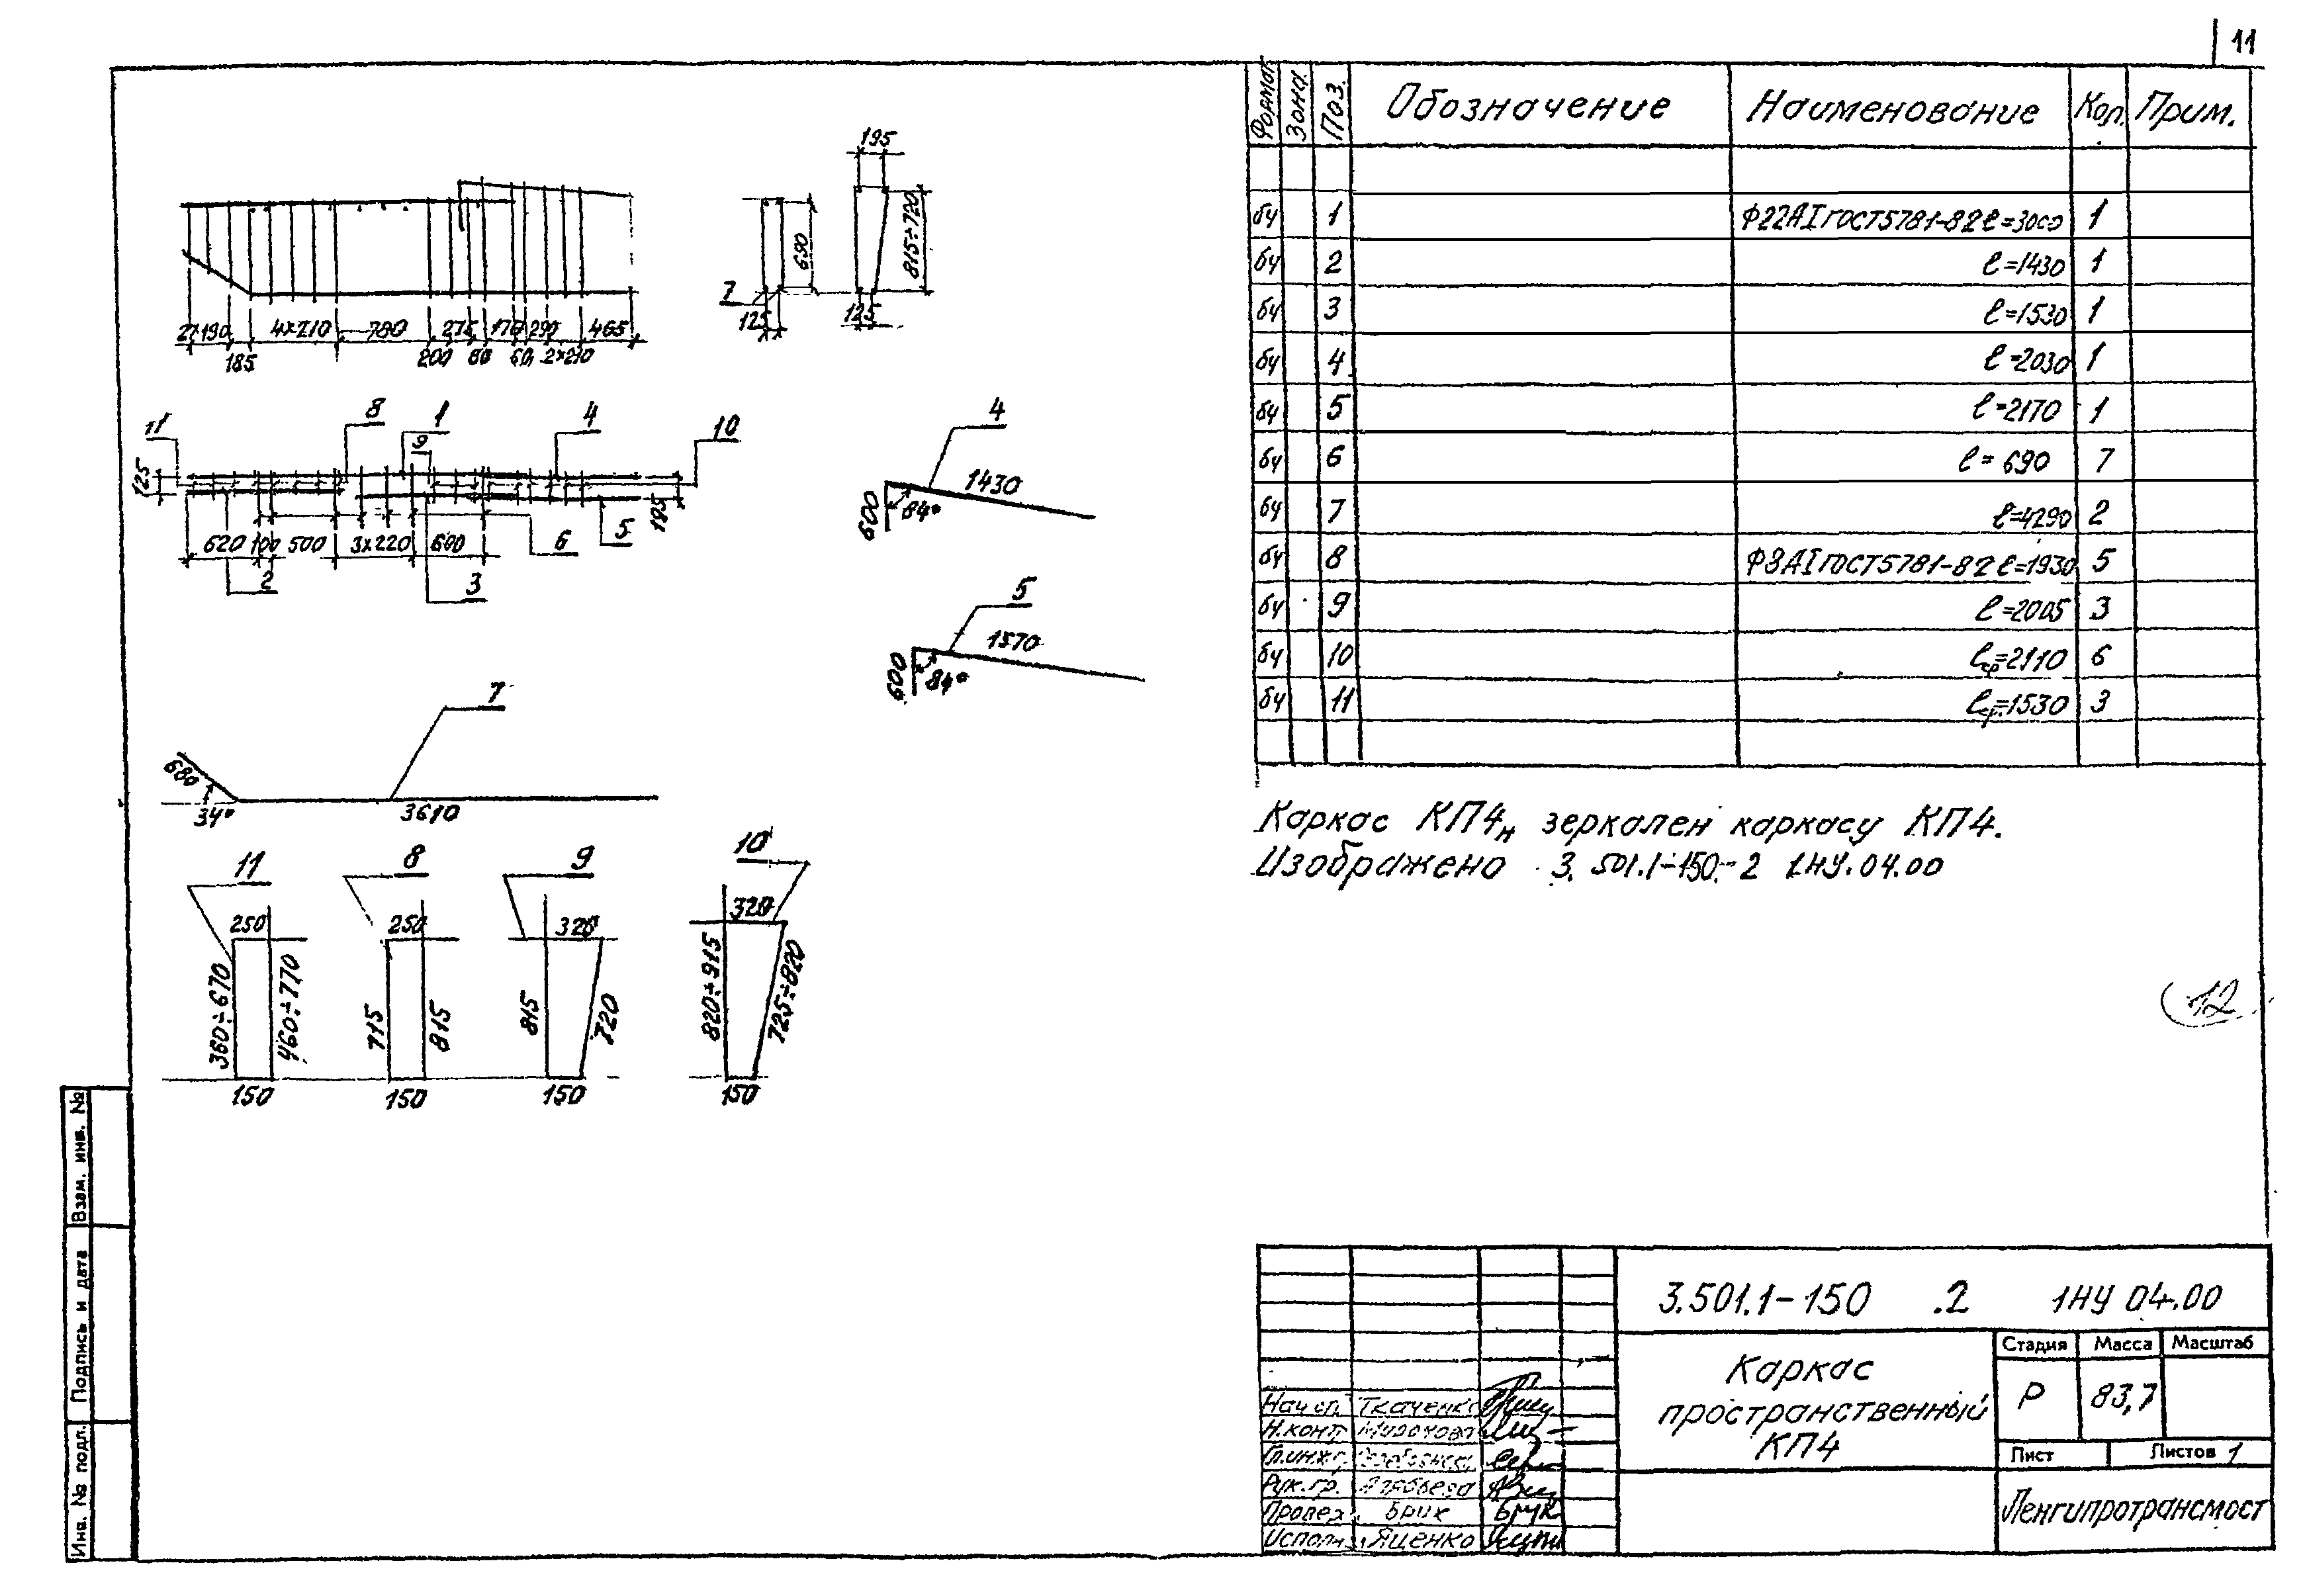 11
Формат Зона Поз. Обозначение Наименование Кол. Прим.
бч 1 Ф22АI ГОСТ5781-82 ℓ=3000 1
бч 2 ℓ=1430 1
бч 3 ℓ=1530 1
бч 4 ℓ=2030 1
бч 5 ℓ=2170 1
бч 6 ℓ=690 7
бч 7 ℓ=4290 2
бч 8 Ф8АI ГОСТ5781-82 ℓ=1930 5
бч 9 ℓ=2005 3
бч 10 ℓср=2110 6
бч 11 ℓср=1530 3
Каркас КП4н зеркален каркасу КП4.
Изображено 3.501.1-150.-2 1НУ.04.00
12
195
690
815÷720
7
125
125
2×190 4×210 780 275 170 290 465
185 200 80 60 2×210
11 8 1 4 10
9
125
195
620 100 500 3×220 600 6 5
2 3
4
1430
600 84°
5
1570
600 84°
7
680
34° 3610
11 8 9 10
250 250 320 320
360÷670 460÷770 715 815 815 720 820÷915 725÷820
150 150 150 150
3.501.1-150 .2 1НУ 04.00
Каркас
пространственный
КП4
Стадия Масса Масштаб
Р 83,7
Лист Листов 1
Ленгипротрансмост
Нач.оп. Ткаченко
Н.конт
Гл.инж.
Рук.гр.
Провер. Брик
Исполн. Яценко
Инв. № подл. Подпись и дата Взам. инв. №